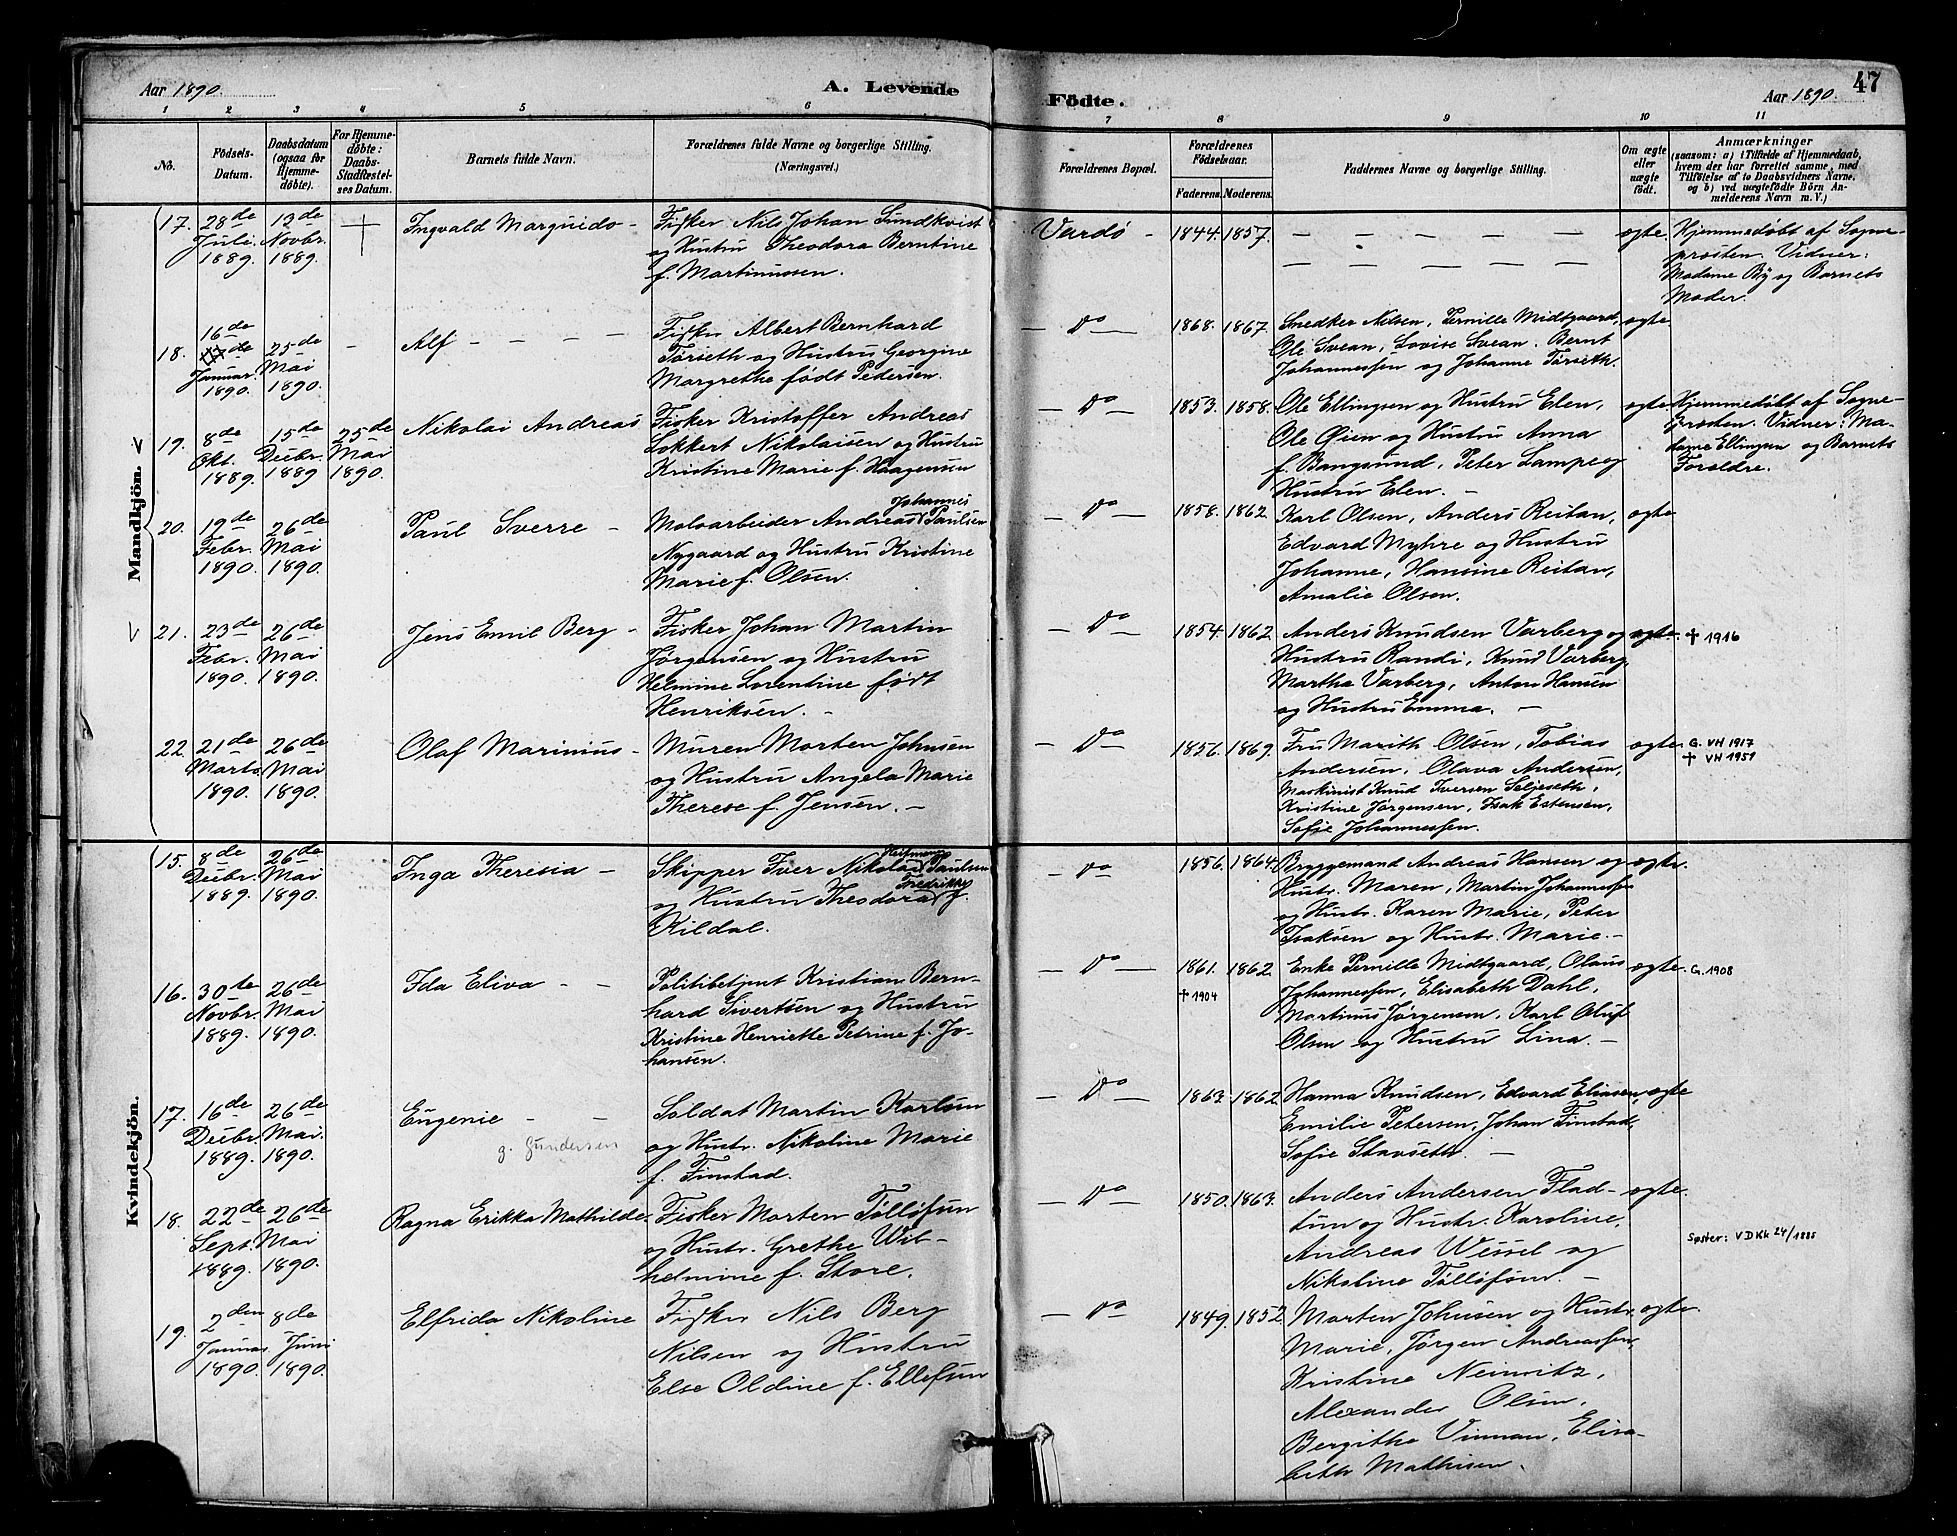 Aar 1890.
A. Levende
Födte.
Aar 1890.
47
1 2 3 4 5 6 7 8 9 10 11
No.
Födsels-
Datum.
Daabsdatum
(ogsaa for
Hjemme-
døbte).
For Hjemme-
døbte:
Daabs-
Stadfæstel-
ses Datum.
Barnets fulde Navn.
Forældrenes fulde Navne og borgerlige Stilling.
(Næringsvei.)
Forældrenes Bopæl.
Forældrenes
Födselsaar.
Faderens. Moderens.
Faddernes Navne og borgerlige Stilling.
Om ægte
eller
uægte
født.
Anmærkninger
(saasom: a) i Tilfælde af Hjemmedaab,
hvem der har forrettet samme, med
Tilføielse af to Daabsvidners Navne,
og b) ved uægtefødte Börn An-
melderens Navn m. V.)
Mandkjön.
17. 28de Juli 1889. 13de Novbr. 1889. Ingvald Marquido -
Fisker Nils Johan Sundkvist
og Hustru Theodora Berntine
f. Martinussen.
Vardø - 1844. 1857. ægte.
Hjemmedøbt af Sogne-
presten. Vidner:
Madame By og Barnets
Moder.
18. 16de Januar. 1890. 25de Mai 1890. - Alf - - - -
Fisker Albert Bernhard
Tørseth og Hustru Georgine
Margrethe født Pedersen.
- Do - 1868. 1867.
Snedker Nilsen, Pernille Midtgaard,
Ole Svean, Lovise Svean. Bernt
Johannessen og Johanne Tørseth.
ægte
19. 8de Okt. 1889. 15de Decbr. 1889 25de Mai 1890. Nikolai Andreas
Fisker Kristoffer Andreas
Lokkert Nikolaisen og Hustru
Kristine Marie f. Haagensen
- Do - 1853. 1858.
Ole Ellingsen og Hustru Elen,
Ole Øien og Hustru Anna
f. Bangsund, Peter Lampe og
Hustru Elen. -
ægte
Hjemmedøbt af Sogne-
presten. Vidner: Ma-
dame Ellingsen og Barnets
Forældre.
20. 19de Febr. 1890. 26de Mai 1890. Paul Sverre -
Johannes
Malvarbeider Andreas Paulsen
Nygaard og Hustru Kristine
Marie f. Olsen.
- Do - 1858. 1862.
Karl Olsen, Anders Reitan,
Edvard Myhre og Hustru
Johanne, Hansine Reitan,
Amalie Olsen.
ægte
21. 23de Febr. 1890. 26de Mai 1890. Jens Emil Berg -
Fisker Johan Martin
Jørgensen og Hustru
Helmine Lorentine født
Henriksen. -
- Do - 1854. 1862
Anders Knudsen Varberg og
Hustru Randi, Knud Varberg,
Martha Varberg, Anton Hansen
og Hustru Emma. -
ægte. † 1916
22 21de Marts 1890. 26de Mai 1890. Olaf Marinius -
Murer Morten Johnsen
og Hustru Angela Marie
Therese f. Jensen. -
- Do - 1856. 1869.
Fru Marith Olsen, Tobias
Andersen, Olava Andersen,
Maskinist Knud Iversen Seljeseth,
Kristine Jørgensen, Isak Estensen,
Sofie Johannessen.
ægte G. VH 1917
† VH 1951
Kvindekjön.
15. 8de Decbr. 1889. 26de Mai 1890. Inga Theresia -
Skipper Iver Nikolai Paulsen
Fredrikke
og Hustru Theodora f.
Kildal.
- Do - 1856. 1864.
Bryggemand Andreas Hansen og
Hustr. Maren, Martin Johannessen
og Hustr. Karen Marie, Peter
Isaksen og Hustr. Marie. -
ægte.
16. 30te Novbr. 1889. 26de Mai 1890. Ida Eliva - -
Politibetjent Kristian Bern-
hard Sivertsen og Hustru
Kristine Henriette Petrine f. Jo-
hansen.
- Do - 1861. 1862
† 1904
Enke Pernille Midtgaard, Olaus
Johannessen, Elisabeth Dahl,
Martinus Jørgensen, Karl Oluf
Olsen og Hustru Lina. -
ægte. G. 1908
17. 16de Decbr. 1889. 26de Mai. 1890. Eugenie - -
g. Gundersen
Soldat Martin Karlsen
og Hustr. Nikoline Marie
f. Finstad.
- Do - 1863. 1862
Hanna Knudsen, Edvard Eliasen,
Emilie Petersen, Johan Finstad,
Sofie Stavseth. -
ægte
18. 22de Sept. 1889. 26de Mai 1890. Ragna Erikka Mathilde.
Fisker Morten Tølløfsen
og Hustr. Grethe Wil-
helmine f. Store.
- Do - 1850. 1863.
Anders Andersen Flad-
tum og Hustr. Karoline,
Andreas Wessel og
Nikoline Tølløfsen. -
ægte.
Søster: VDKk 24/1885
19. 2den Januar 1890. 8de Juni 1890. Elfrida Nikoline
Fisker Nils Berg
Nilsen og Hustru
Else Oldine f. Ellefsen
- Do - 1849. 1852
Morten Johnsen og Hustr.
Marie, Jørgen Andreassen,
Kristine Neinvitz,
Alexander Olsen,
Bergitha Vinnan, Elisa-
beth Mathisen.
ægte.